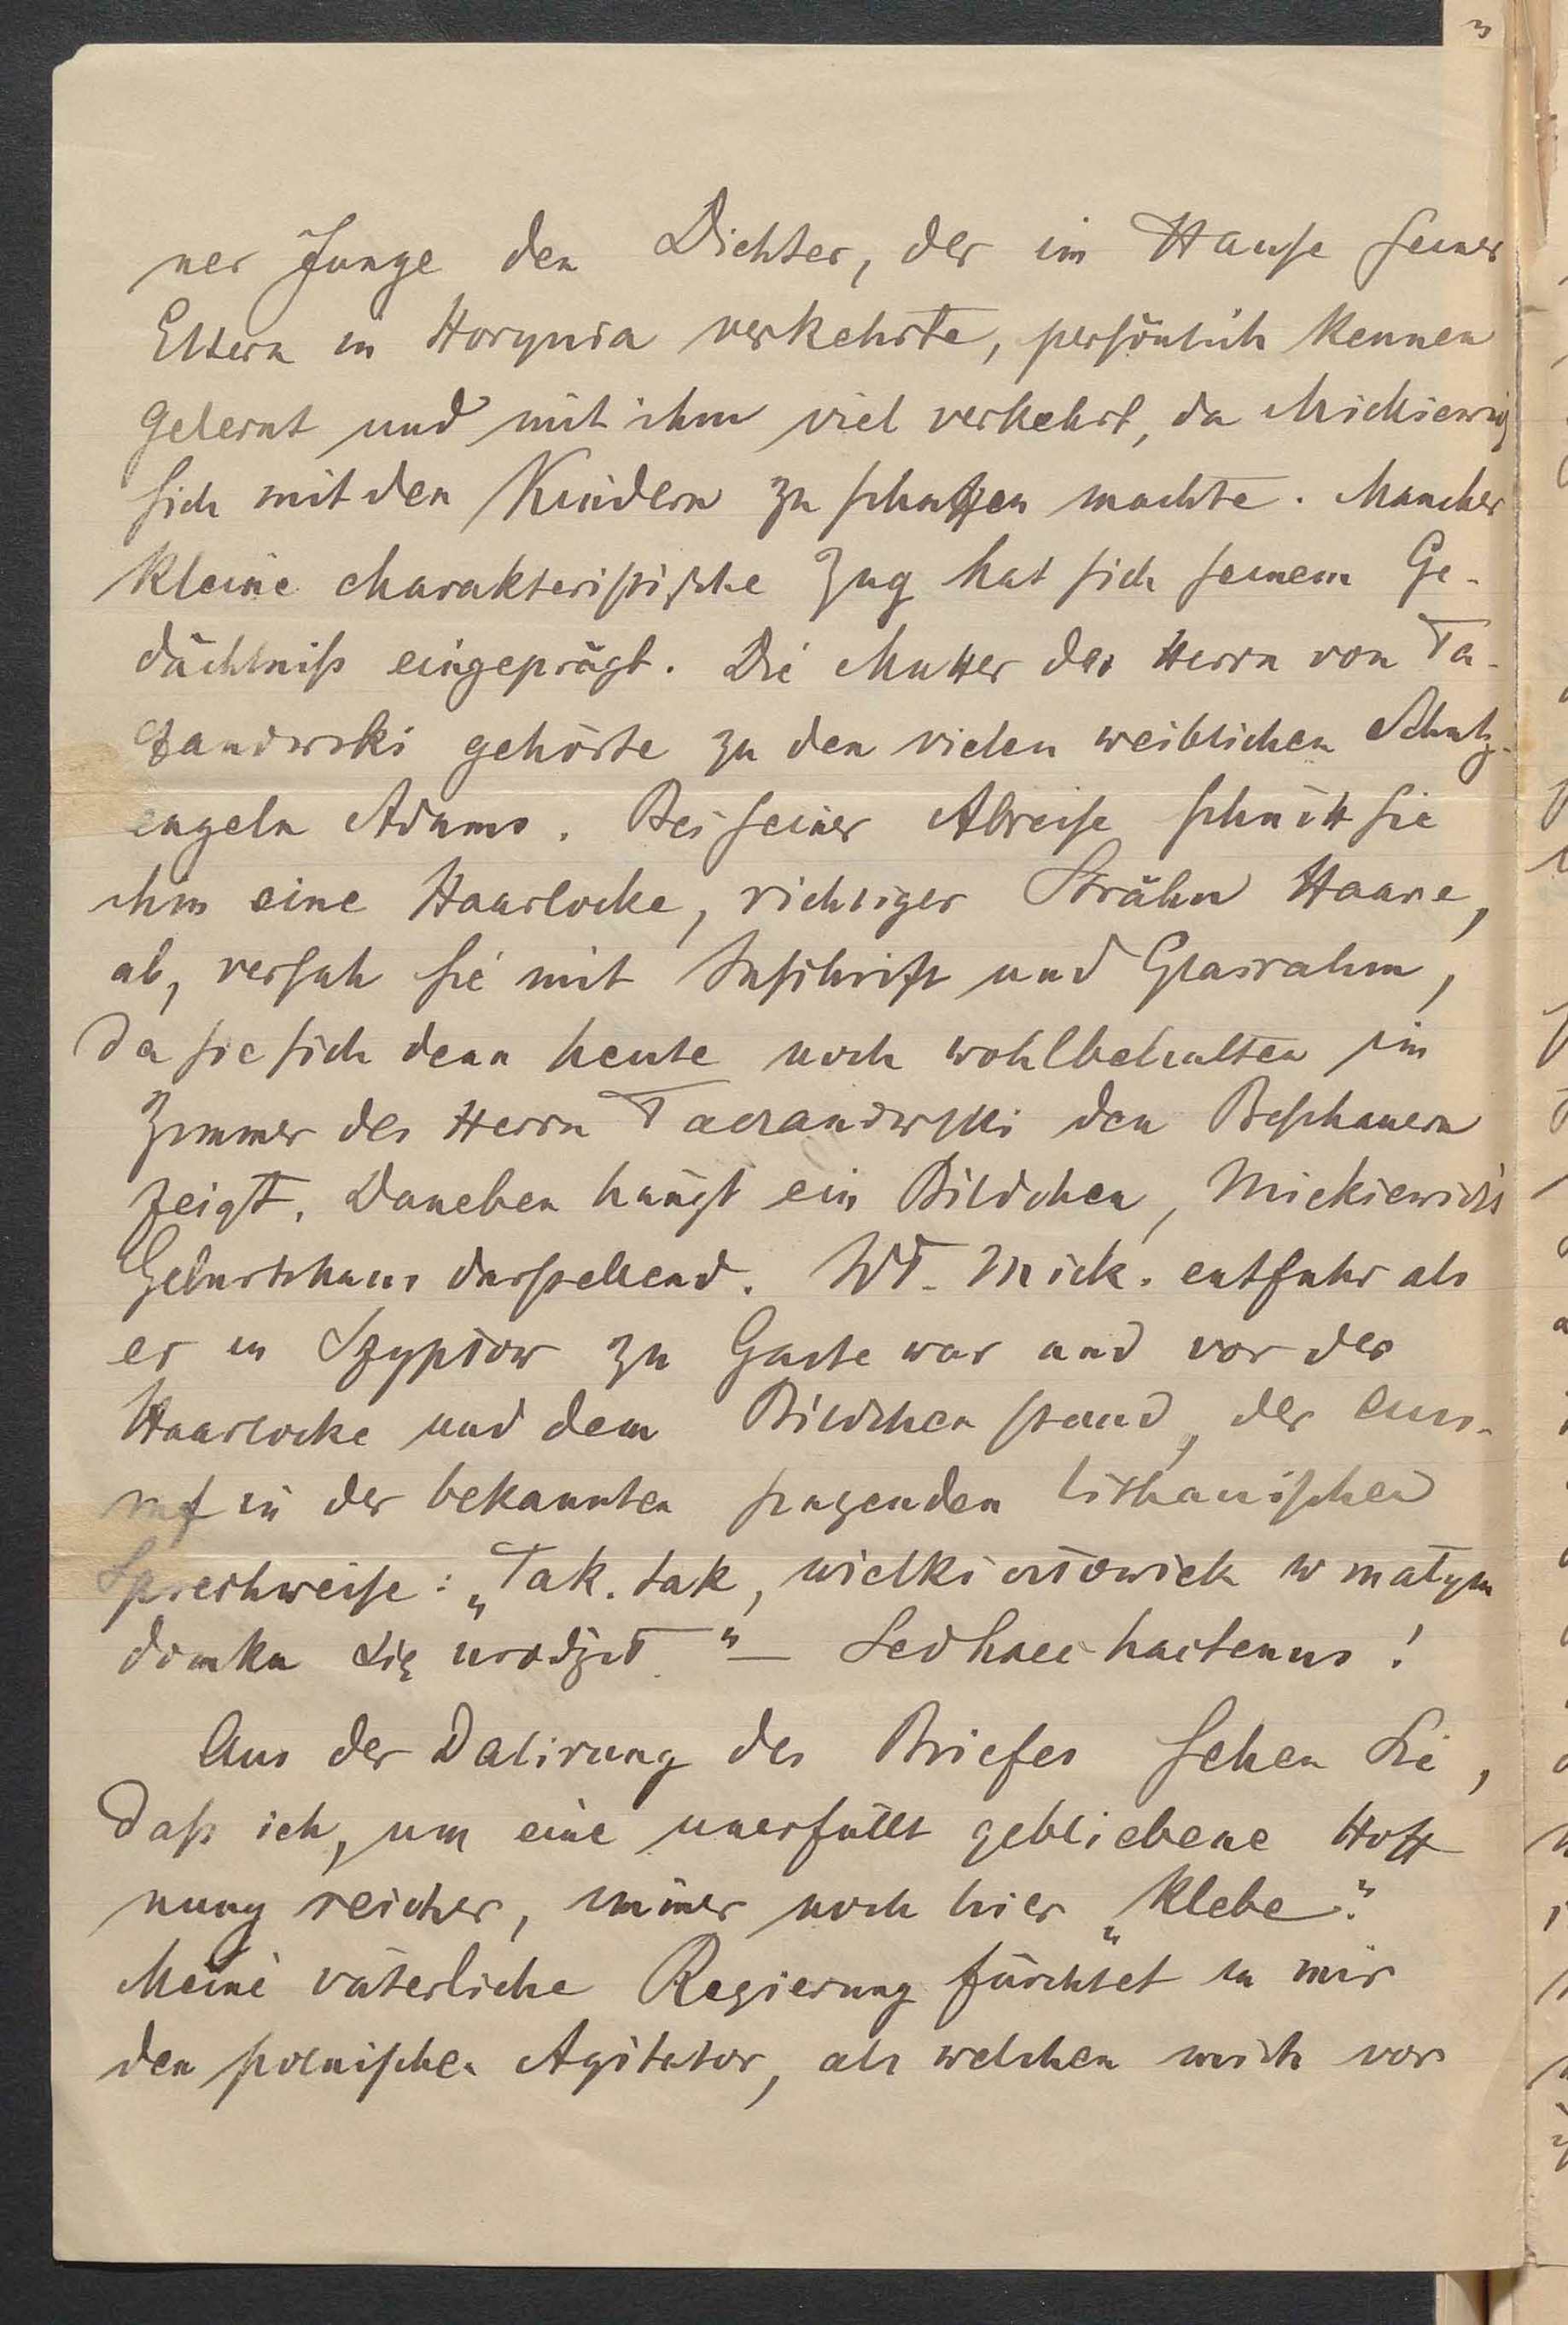 ner Junge den Dichter, der im Hause seiner
Eltern in Horynia verkehrte, persönlich kennen
gelernt und mit ihm viel verkehrt, da Mickiewicz
sich mit den Kindern zu schaffen machte. Mancher
kleine charakteristische Zug hat sich seinem Ge-
dächtniß eingeprägt. Die Mutter des Herrn von Ta-
czanowski gehörte zu den vielen weiblichen Schutz-
engeln Adams. Bei seiner Abreise schnitt sie
ihm eine Haarlocke, richtiger Strähn Haare,
ab, versah sie mit Inschrift und Glasrahm,
da sie sich denn heute noch wohlbehalten im
Zimmer des Herrn Taczanowski den Beschauern
zeigt. Daneben hängt ein Bildchen, Mickiewicz's
Geburtshaus darstellend. Wł. Mick. entfuhr als
er in Szypłow zu Gaste war und vor der
Haarlocke und dem Bildchen stand, der Aus-
ruf in der bekannten singenden lithauischen
Sprechweise: „Tak, tak, wielki człowiek w małym
domku się urodził" — Sed haec hactenus!
Aus der Datirung des Briefes sehen Sie,
daß ich, um eine unerfüllt gebliebene Hoff
nung reicher, immer noch hier „klebe".
Meine väterliche Regierung fürchtet in mir
den polnischen Agitator, als welchen mich vor